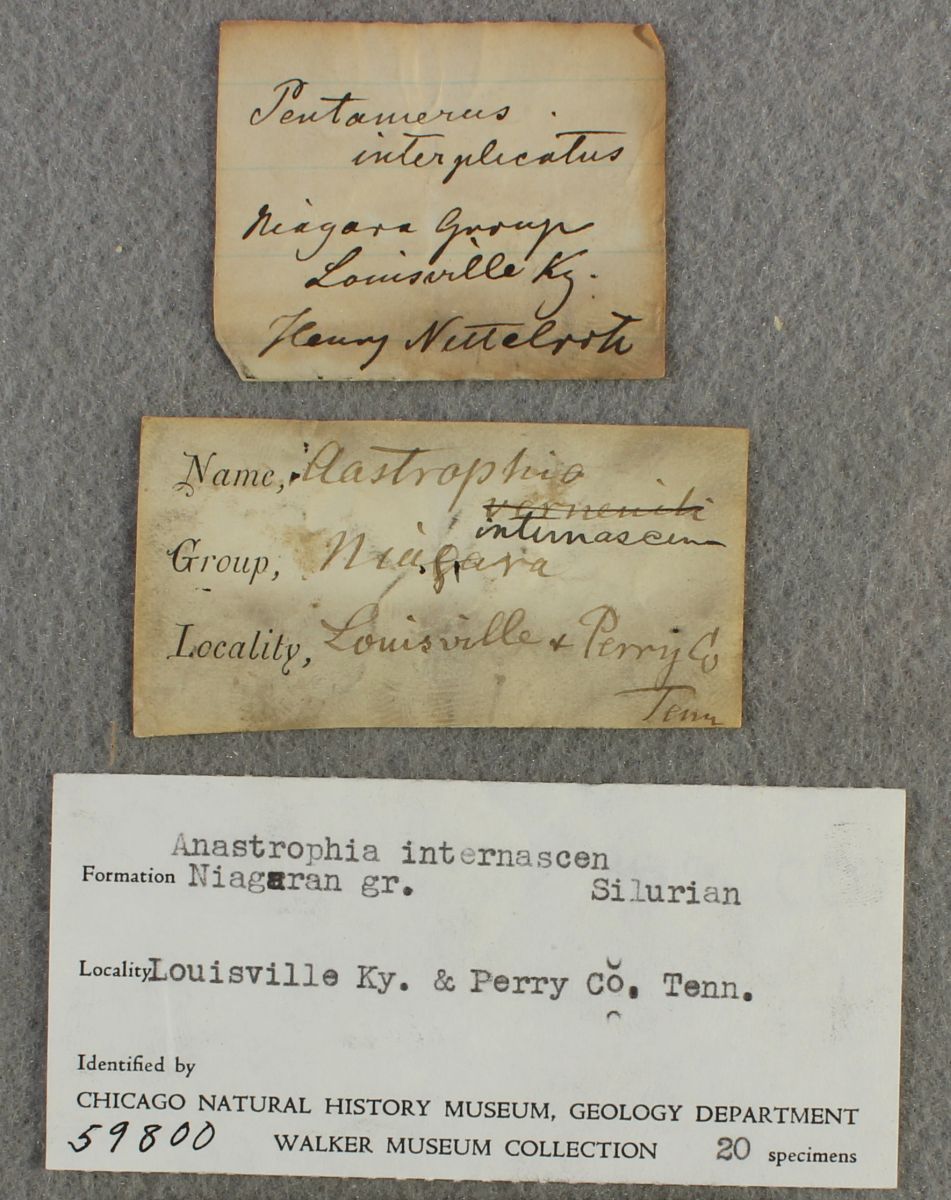 Pentamerus
interplicatus
Niagara Group
Louisville Ky.
Henry Nettelroth
Name, Aastrophia
verneuili
internascens
Group, Niagara
Locality, Louisville & Perry Co
Tenn
Anastrophia internascen
Formation Niagaran gr. Silurian
Locality Louisville Ky. & Perry Co. Tenn.
Identified by
CHICAGO NATURAL HISTORY MUSEUM, GEOLOGY DEPARTMENT
59800 WALKER MUSEUM COLLECTION 20 specimens